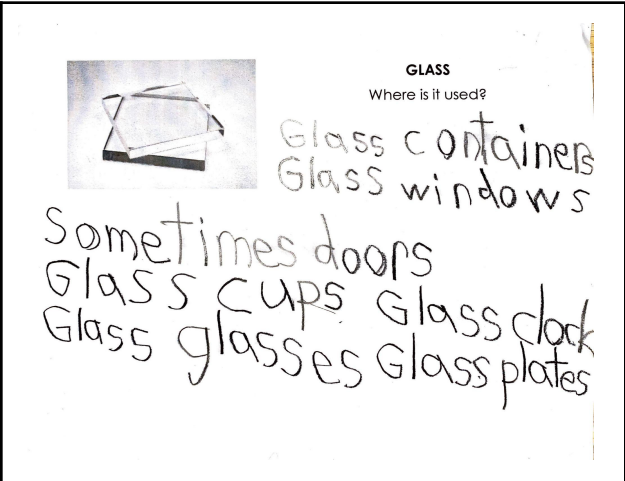 GLASS
Where is it used?
Glass containers
Glass windows
Sometimes doors
Glass cups Glass clock
Glass glasses Glass plates